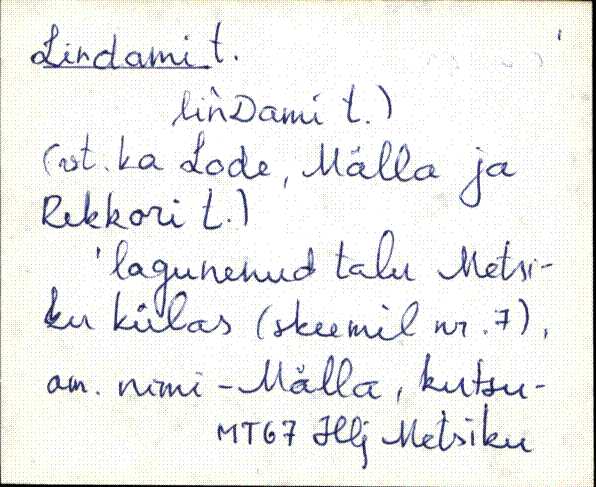 Lindami t.
lin̄Dami t.)
(vt. ka Lode, Mälla ja
Rekkori t.)
'lagunenud talu Metsi-
ku külas (skeemil nr. 7),
am. nimi - Mälla, kutsu-
MT67 Jllj Metsiku